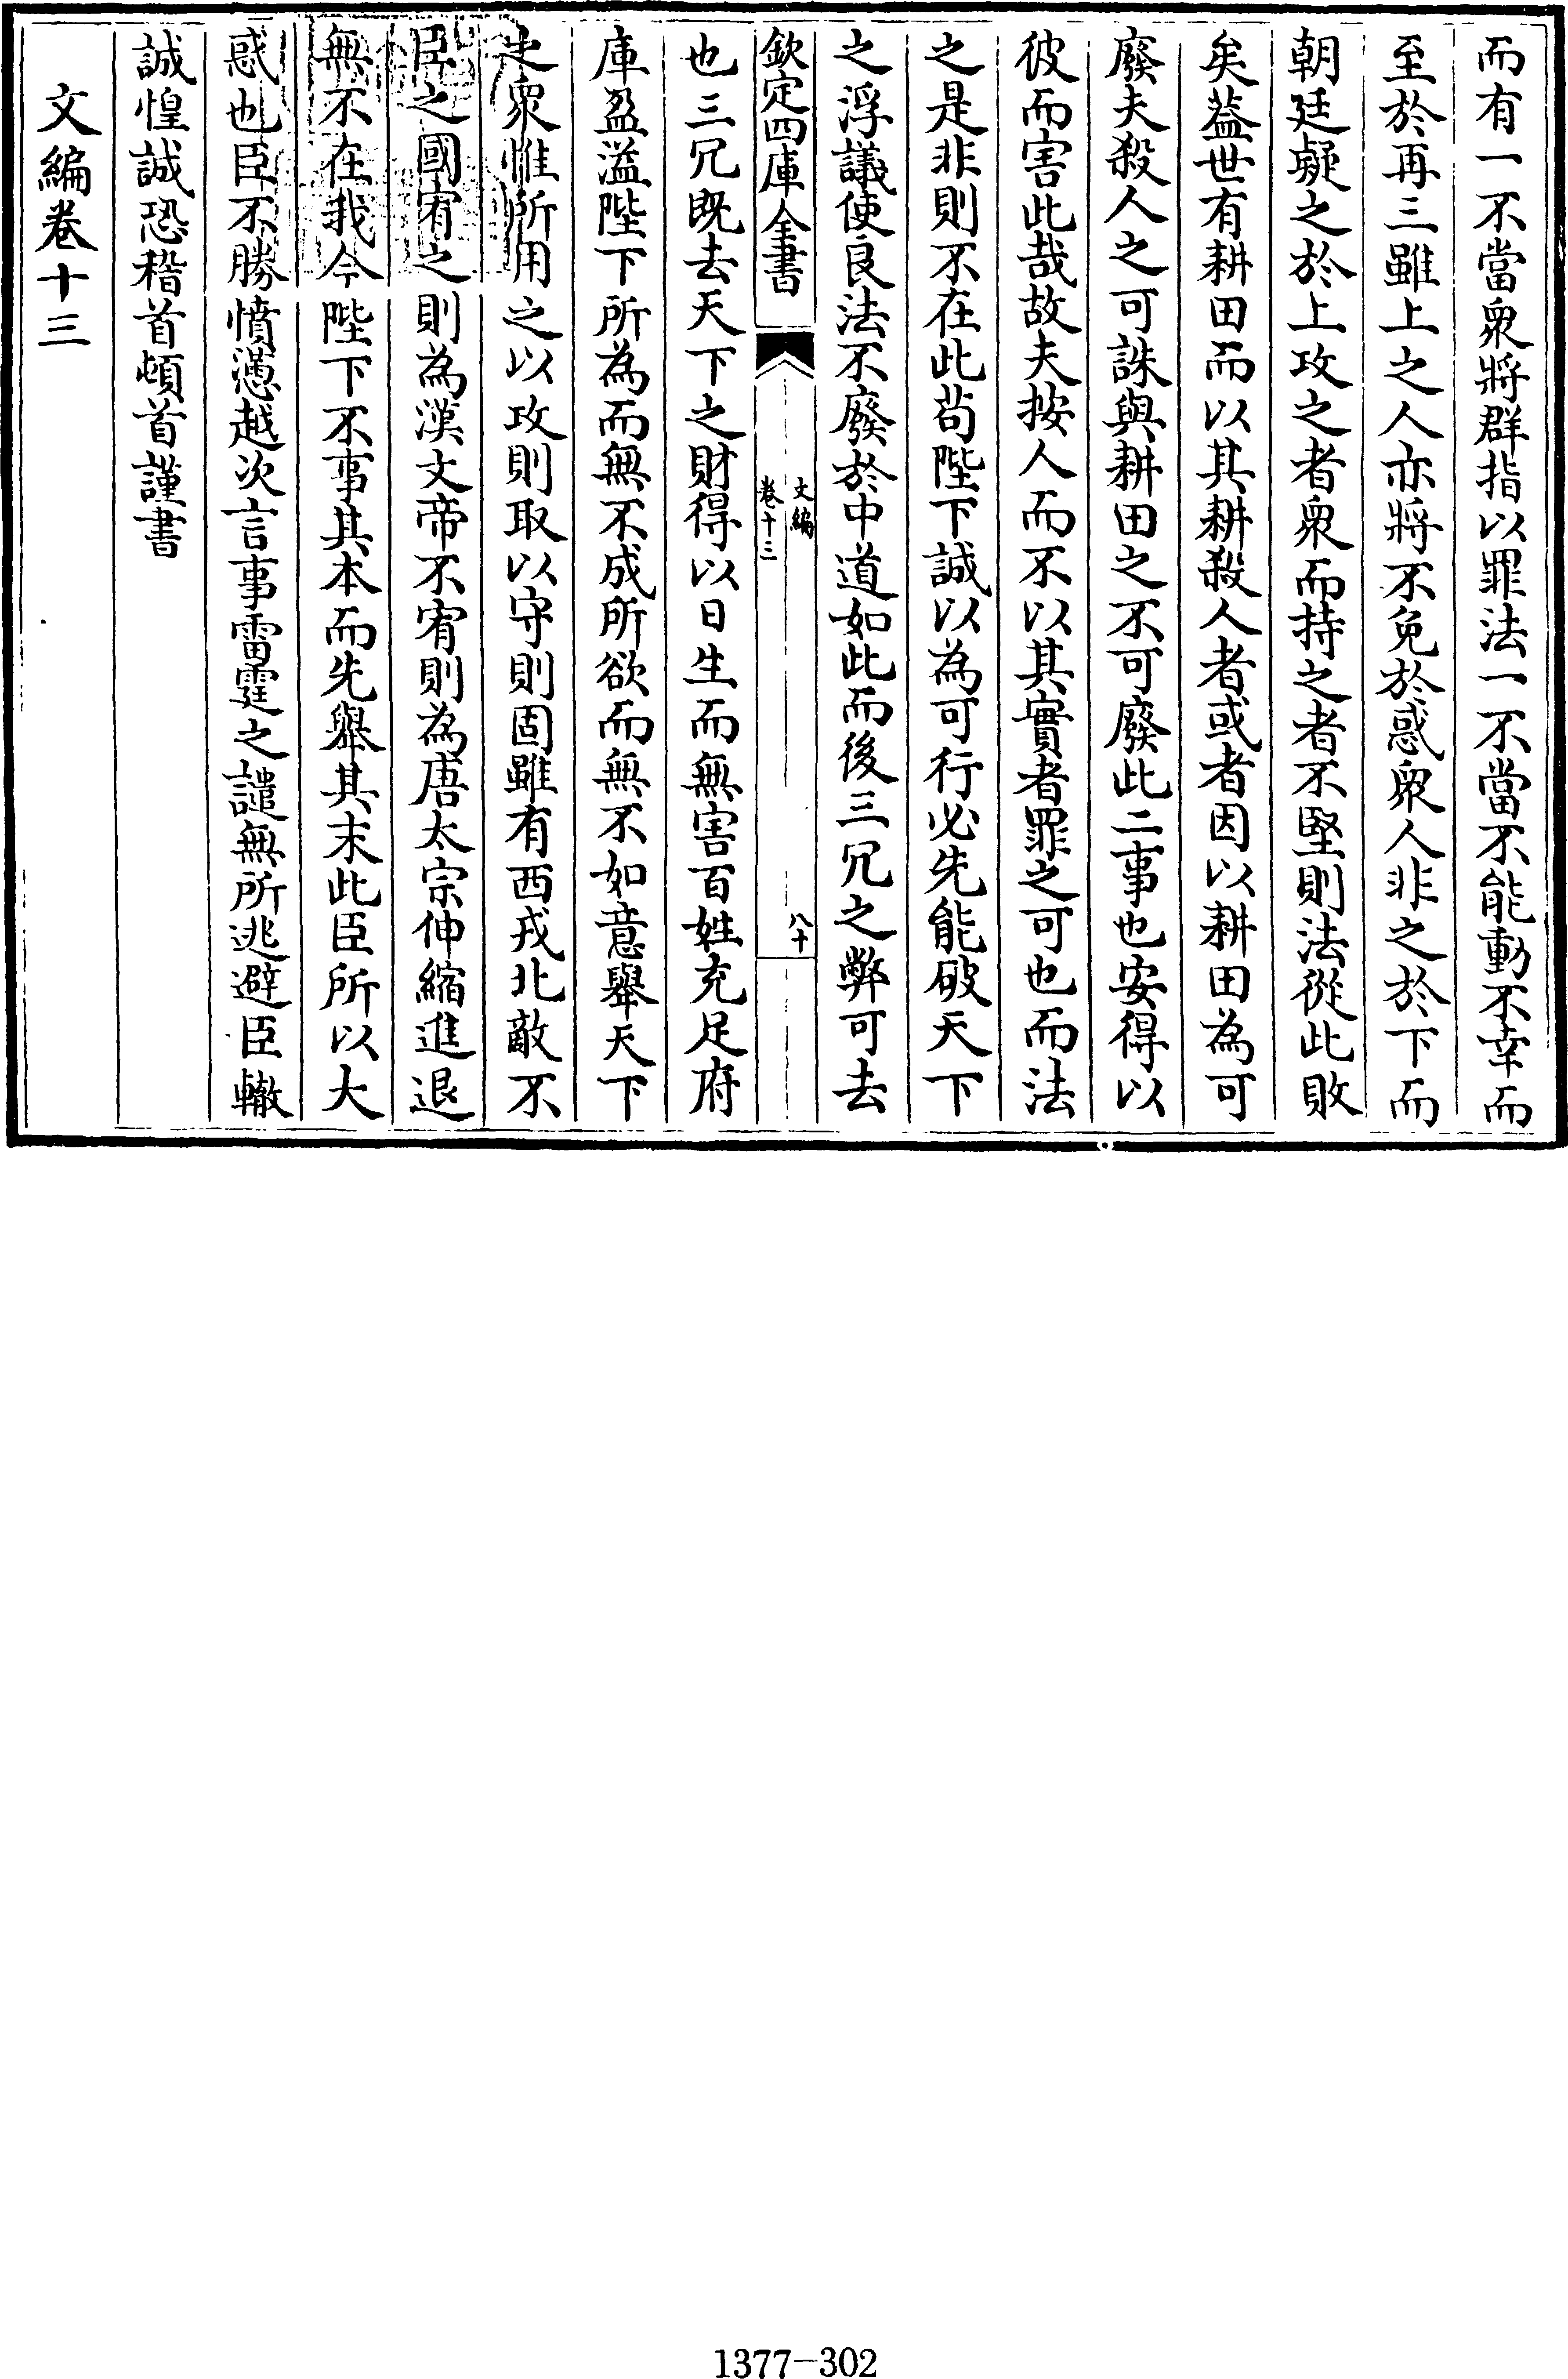 而有一不當衆將群指以罪法一不當不能動不幸而
至於再三雖上之人亦將不免於惑衆人非之於下而
朝廷疑之於上攻之者衆而持之者不堅則法從此敗
矣葢世有耕田而以其耕殺人者或者因以耕田為可
廢夫殺人之可誅與耕田之不可廢此二事也安得以
彼而害此哉故夫按人而不以其實者罪之可也而法
之是非則不在此苟陛下誠以為可行必先能破天下
之浮議使良法不廢於中道如此而後三冗之弊可去
欽定四庫全書
文編
卷十三
八十
也三冗既去天下之財得以日生而無害百姓充足府
庫盈溢陛下所為而無不成所欲而無不如意舉天下
之衆惟所用之以攻則取以守則固雖有西戎北敵不
臣之國宥之則為漢文帝不宥則為唐太宗伸縮進退
無不在我今陛下不事其本而先舉其末此臣所以大
惑也臣不勝憤懣越次言事雷霆之譴無所逃避臣轍
誠惶誠恐稽首頓首謹書
文編卷十三
1377-302